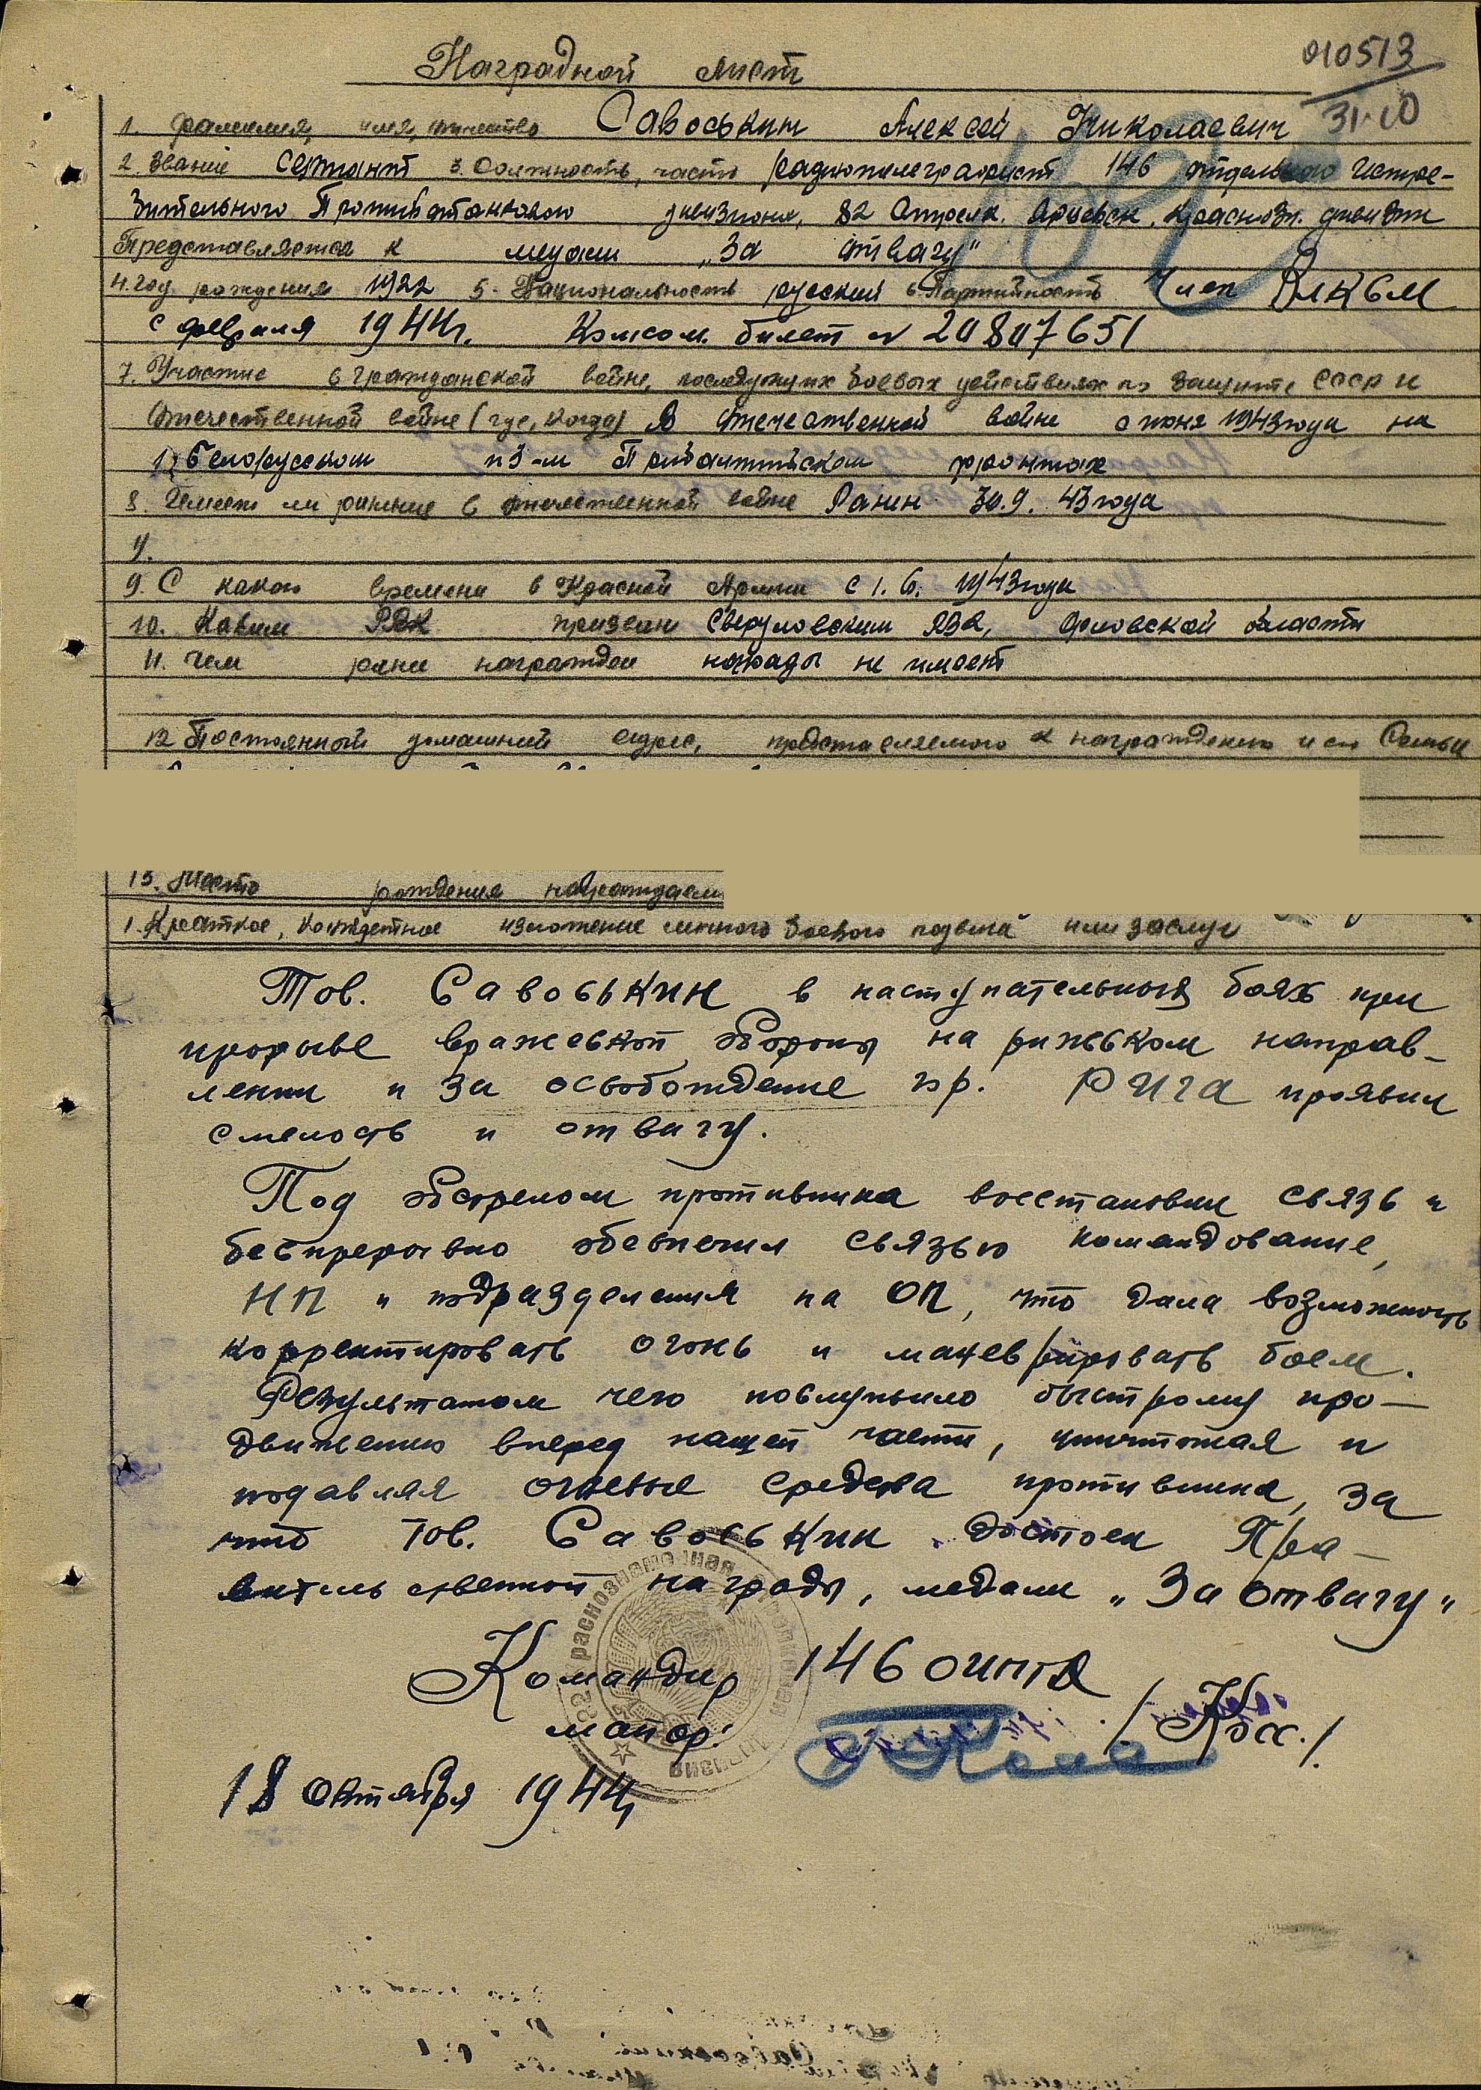 Наградной лист
010513
31.10
1. Фамилия, имя, отчество Савоськин Алексей Николаевич
2. Звание Сержант 3. Должность, часть радиотелеграфист 146 отдельного Истре-
бительного Противотанкового дивизиона, 82 Стрелк. Ярцевск. Краснозн. дивизии
Представляется к медали „За отвагу"
4. Год рождения 1922 5. Национальность русский 6 Партийность Член ВЛКСМ
с февраля 1944г. Комсом. билет №
7. Участие в гражданской войне, последующих боевых действиях по защите СССР и
отечественной войне (где, когда) В отечественной войне с июня 1943 года на
1, Белорусском и 3-м Прибалтийском фронтах
8. Имеет ли ранение в отечественной войне Ранен 30.9.43 года
9. С какого времени в Красной Армии с 1.6.1943 года
10. Каким РВК призван Свердловским РВК, Орловской области
11. Чем ранее награжден награды не имеет
12 Постоянный домашний адрес, представляемого к награждению и его Семьи
13. Место рождения награждаем
1. Краткое, конкретное изложение личного боевого подвига или заслуг
Тов. Савоськин в наступательных боях при
прорыве вражеской обороны на рижском направ-
лении и за освобождение гор. РИГА проявил
смелость и отвагу.
Под обстрелом противника восстановил связь и
беспрерывно обеспечил связью командование,
НП и подразделения на ОП, что дала возможность
корректировать огонь и маневрировать боем.
Результатом чего послужило быстрому про-
движению вперед нашей части, уничтожая и
подавляя огневые средства противника, за
что тов. Савоськин достоен Пра-
вительственной награды, медали „За отвагу"
Командир 146 оиптд
майор: /Косс./
18 октября 1944г
82 Краснознаменная стрелковая дивизия